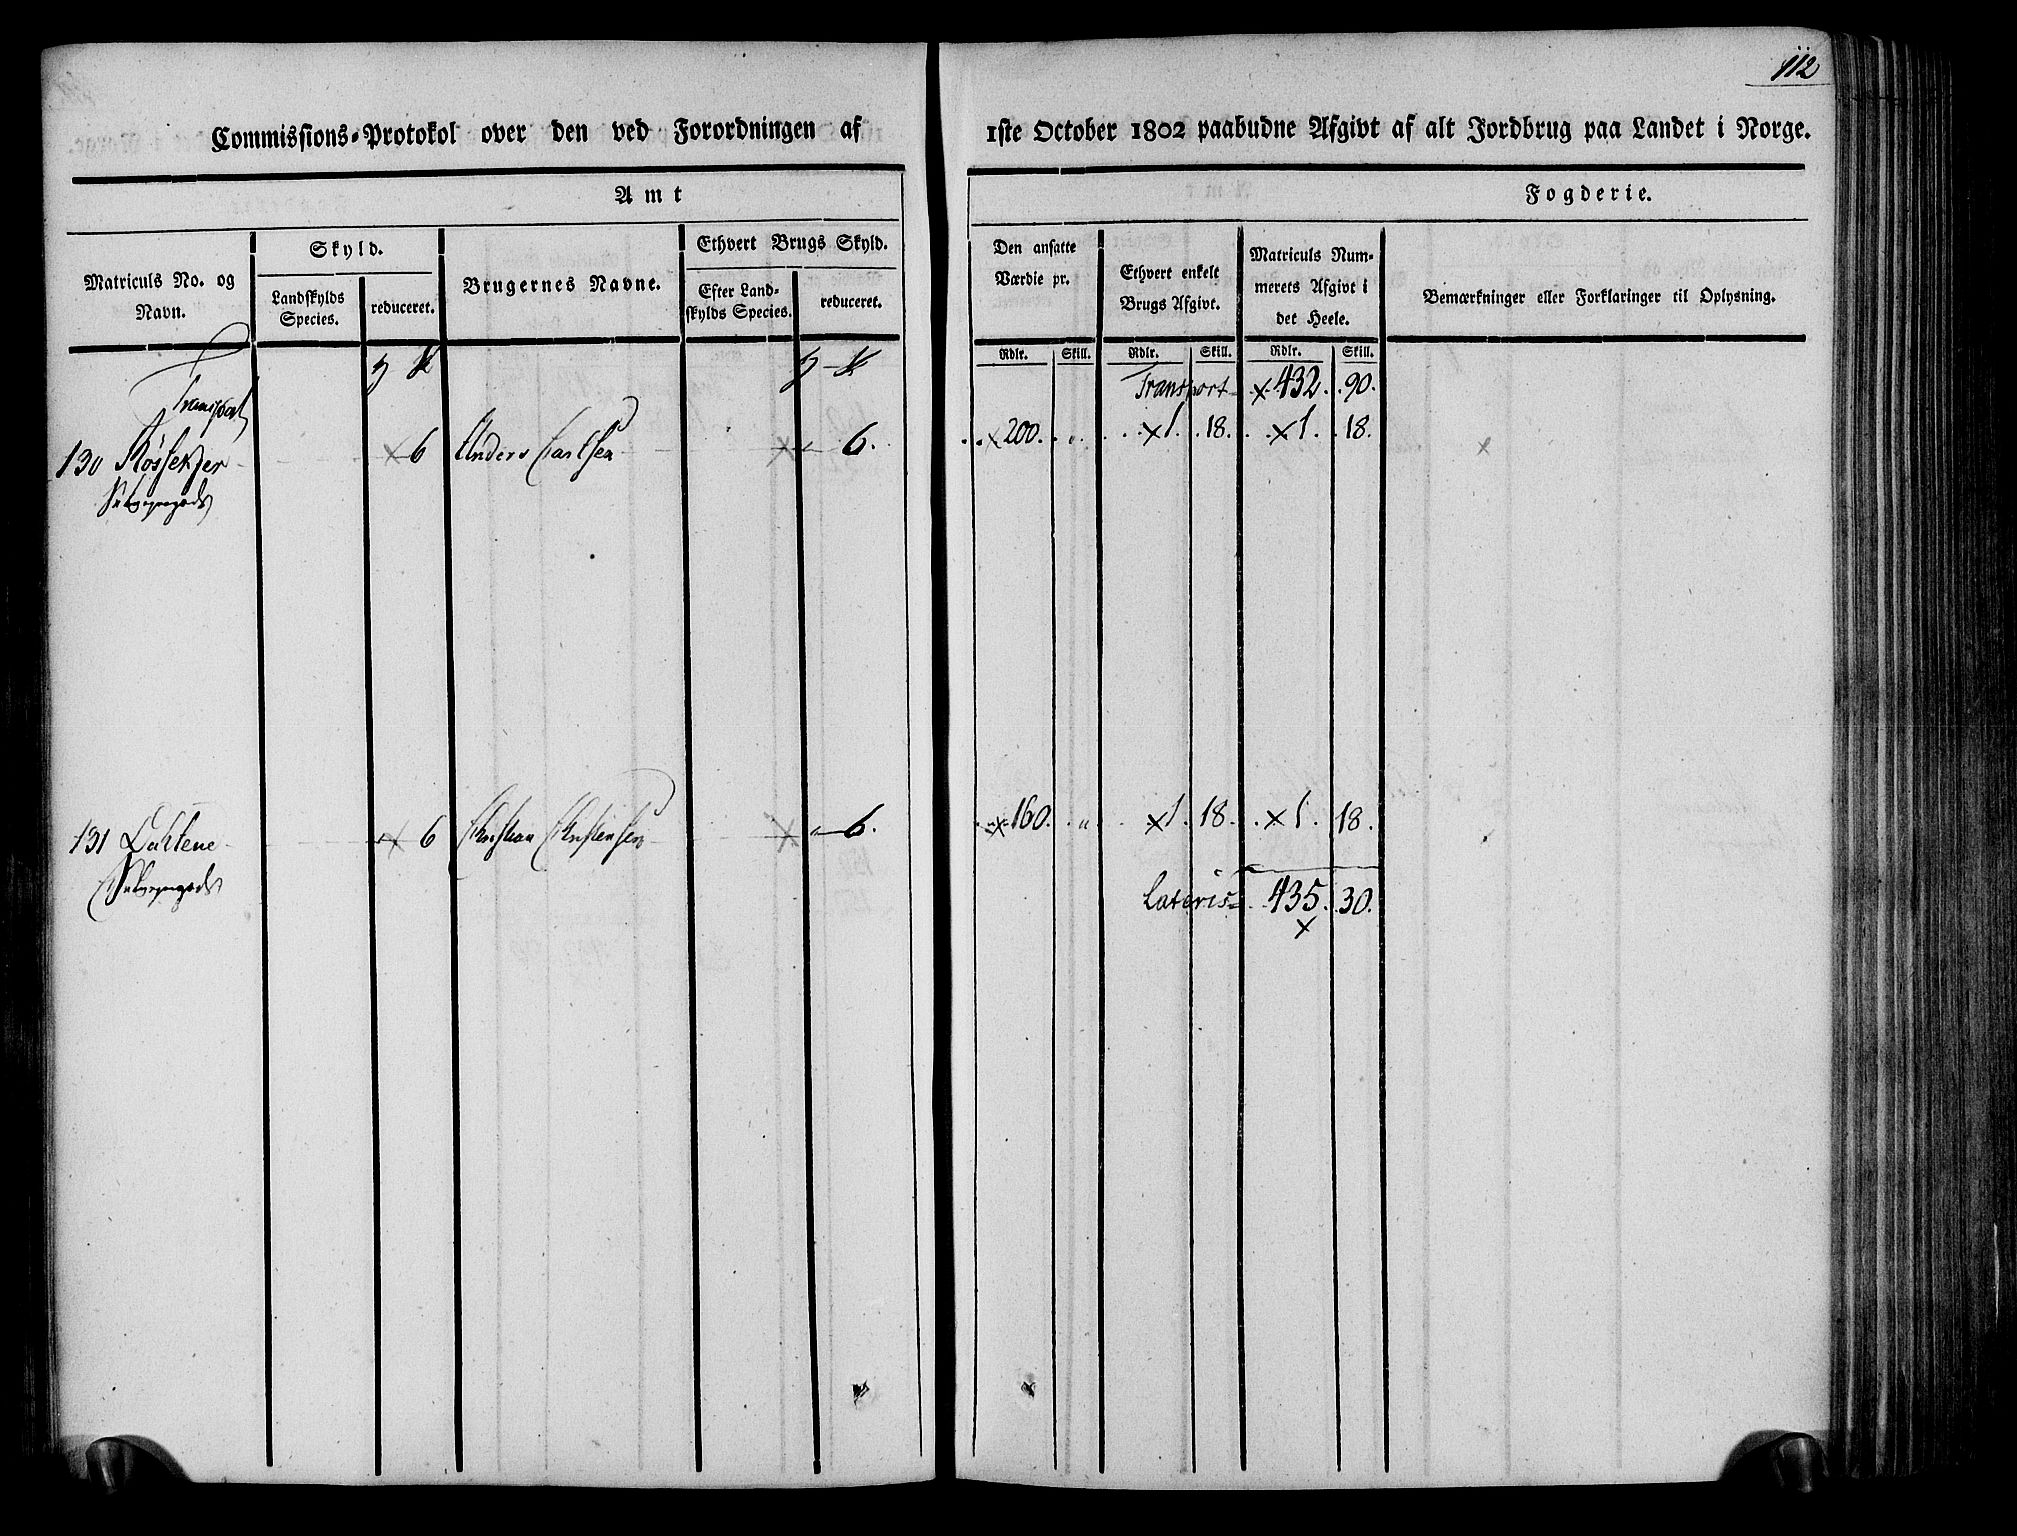 112
Commissions-Protokol over den ved Forordningen af 1ste October 1802 paabudne Afgivt af alt Jordbrug paa Landet i Norge.
Amt Fogderie.
Matriculs No. og Navn.
Skyld.
Landskylds Species.
reduceret.
Brugernes Navne.
Ethvert Brugs Skyld.
Efter Landskylds Species.
reduceret.
Den ansatte Værdie pr.
Ethvert enkelt Brugs Afgivt.
Matriculs Nummerets Afgivt i det Heele.
Bemærkninger eller Forklaringer til Oplysning.
Rdlr. Skill. Rdlr. Skill. Rdlr. Skill.
Transport Transport 432. 90.
130 6 Anders 6. 200. 1. 18. 1. 18.
131 6 Christian Christensen 6. 160. 1. 18. 1. 18.
Lateris 435. 30.